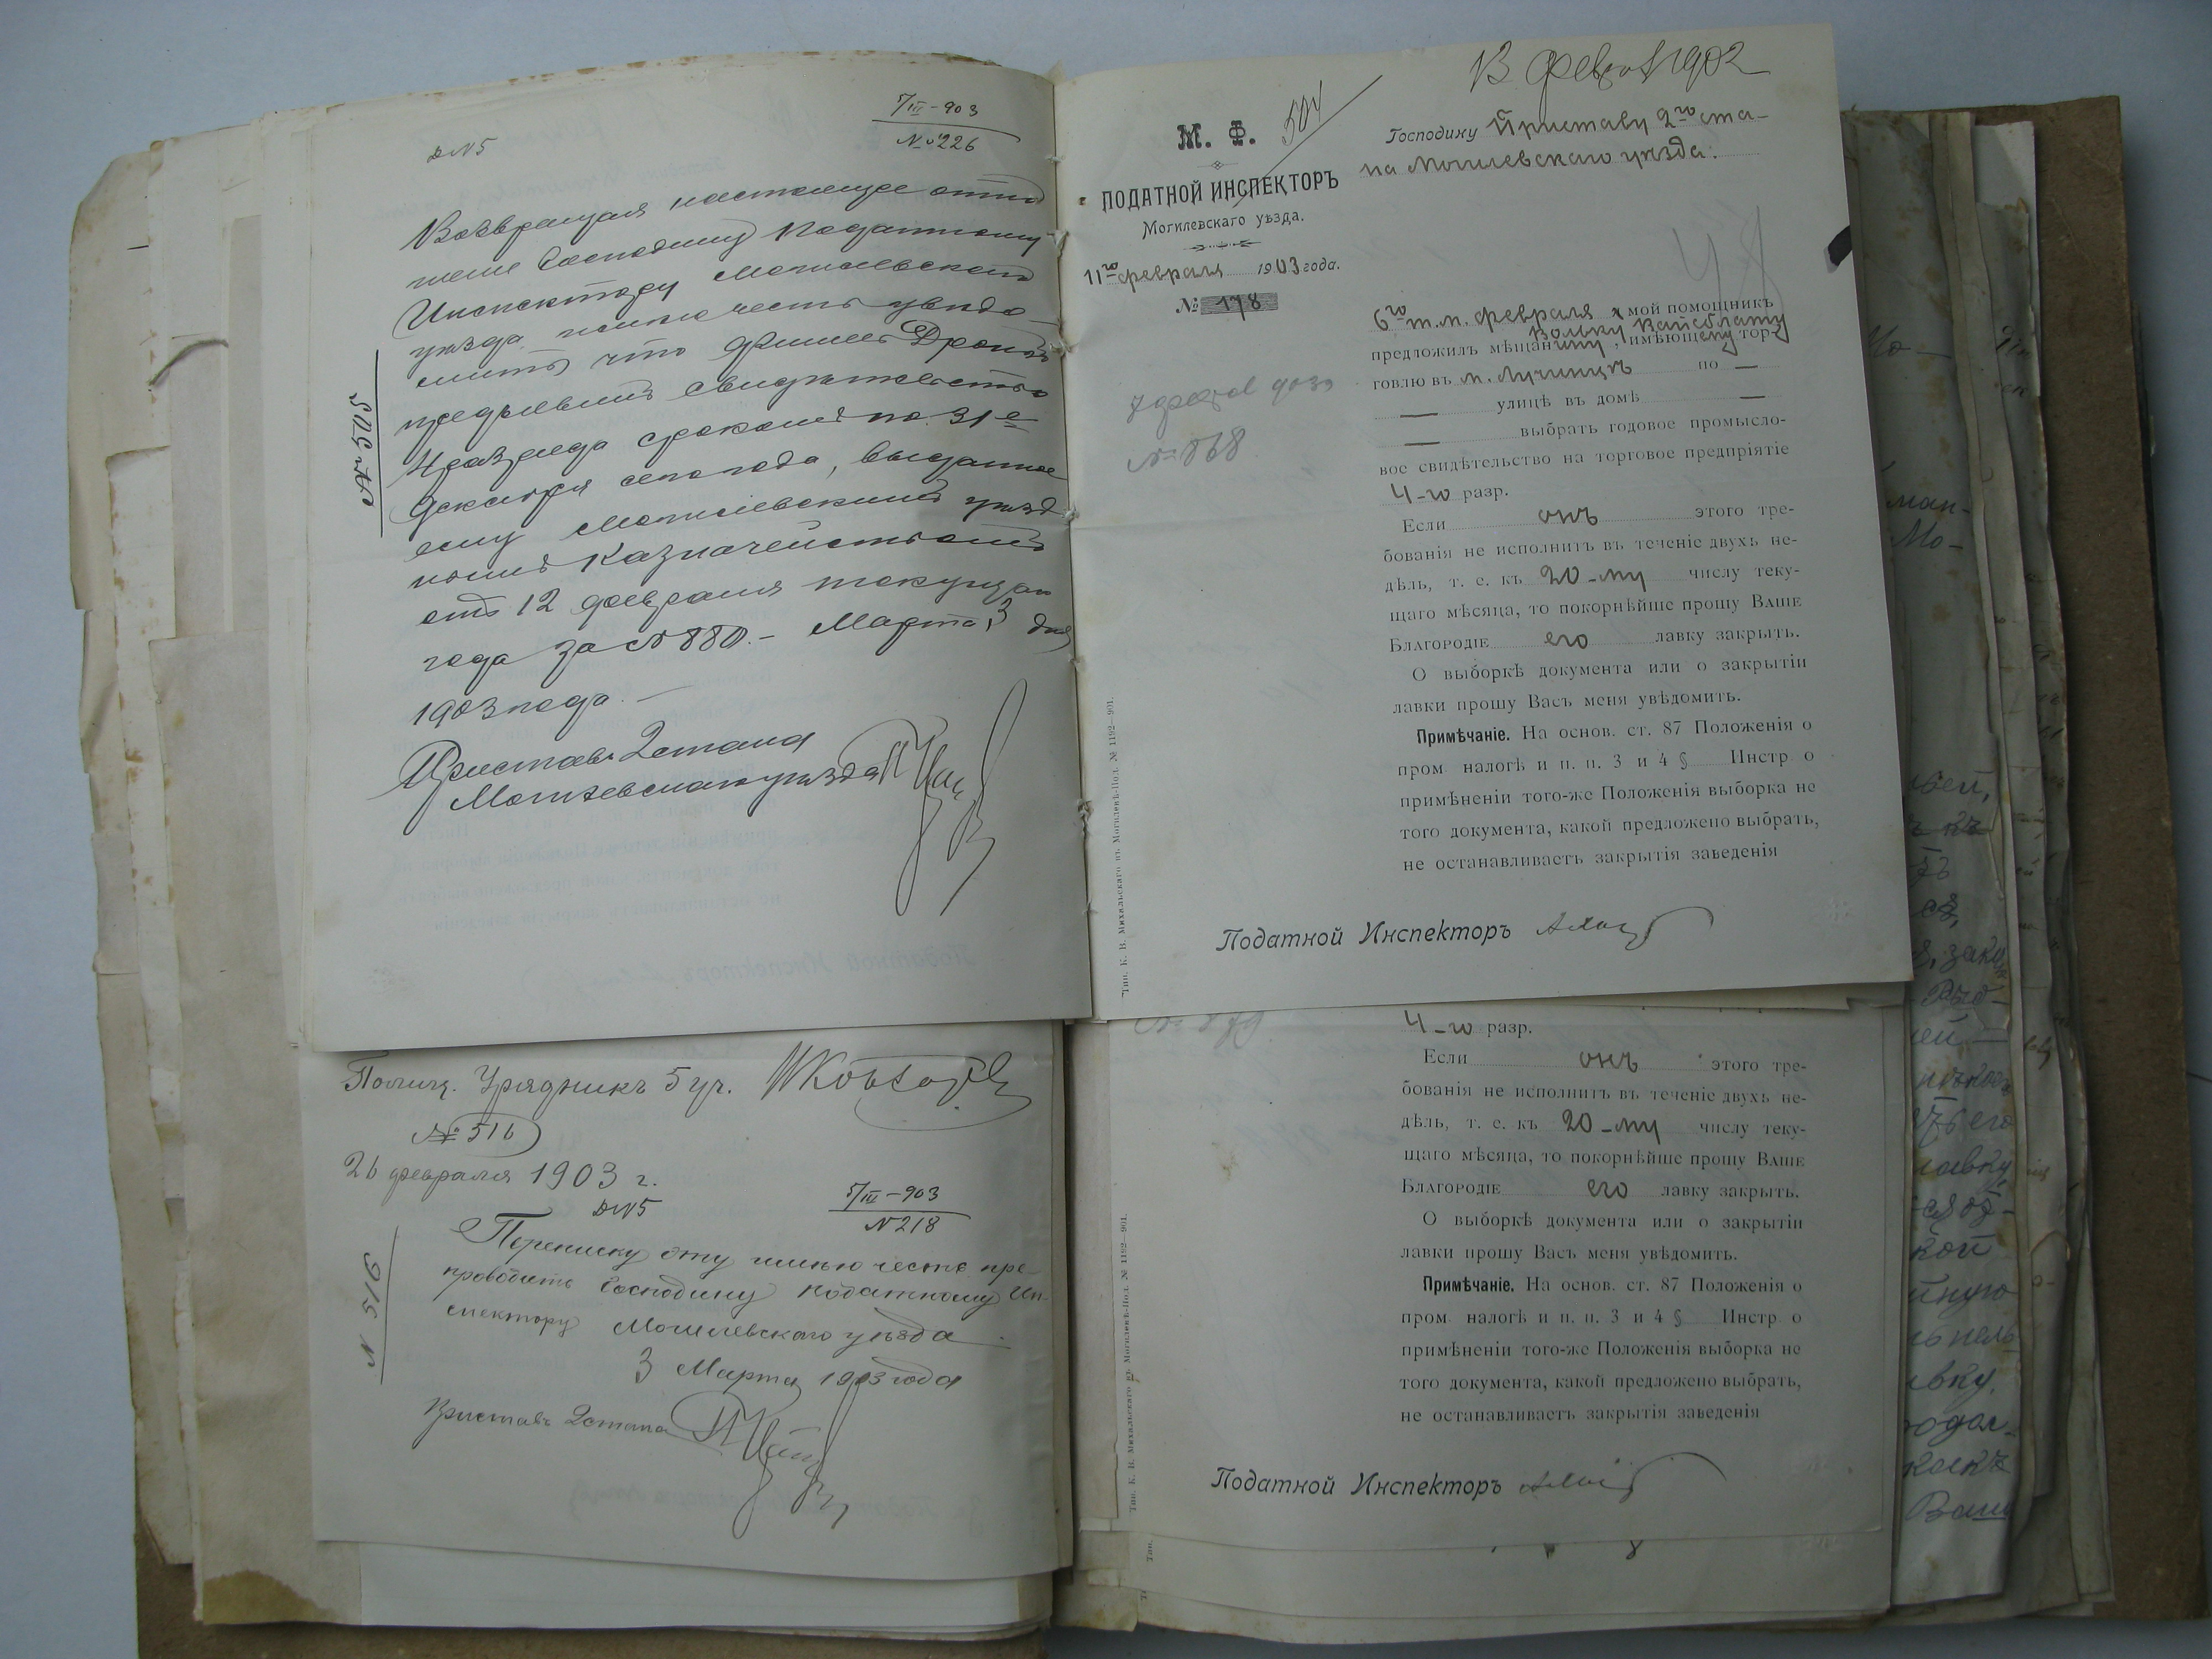 5/III – 903
№ 226
Д №5
№ 505
Возвращая настоящее отно
шение Господину Податному
Инспектору Могилевского
уезда имею честь уведо-
мить что
предъявилъ свидетельство
4 разряда срокомъ по 31е
декабря сего года, выданное
ему Могилевскимъ уезд
нымъ Казначействомъ
отъ 12 февраля текущаго
года за №880.– Марта 3 дня
1903 года.–
Приставъ 2 стана
Могилевского уезда
Полиц. Урядникъ 5 уч.
№ 516
26 февраля 1903 г.
Д №5
5/III – 903
№ 218
№ 516
Переписку эту имею честь пре-
проводить Господину Податному Ин-
спектору Могилевского уезда
3 Марта 1903 года
Приставъ 2 стана
13 февр 1902
504
М. Ф.
ПОДАТНОЙ ИНСПЕКТОРЪ
Могилевскаго уѣзда.
11го февраля 1903 года.
№ 178
№ 868
Господину Приставу 2го ста-
на Могилевскаго уѣзда.
6го т.м. февраля мой помощникъ
Вольку Вайсблату
предложилъ мѣщанину, имѣющему тор-
говлю въ м. Лучинцѣ по —
— улицѣ въ домѣ —
— выбрать годовое промысло-
вое свидѣтельство на торговое предпріятіе
4-го разр.
Если онъ этого тре-
бованія не исполнитъ въ теченіе двухъ не-
дѣль, т. е. къ 20-му числу теку-
щаго мѣсяца, то покорнѣйше прошу ВАШЕ
БЛАГОРОДІЕ его лавку закрыть.
О выборкѣ документа или о закрытіи
лавки прошу Васъ меня увѣдомить.
Примѣчаніе. На основ. ст. 87 Положенія о
пром налогѣ и п. п. 3 и 4 § Инстр о
примѣненіи того-же Положенія выборка не
того документа, какой предложено выбрать,
не останавливаетъ закрытія заведенія
Податной Инспекторъ
Тип. К. И. Михальскаго въ Могилевѣ-Под. № 1192—901.
4-го разр.
Если онъ этого тре-
бованія не исполнитъ въ теченіе двухъ не-
дѣль, т. е. къ 20-му числу теку-
щаго мѣсяца, то покорнѣйше прошу ВАШЕ
БЛАГОРОДІЕ его лавку закрыть.
О выборкѣ документа или о закрытіи
лавки прошу Васъ меня увѣдомить.
Примѣчаніе. На основ. ст. 87 Положенія о
пром налогѣ и п. п. 3 и 4 § Инстр о
примѣненіи того-же Положенія выборка не
того документа, какой предложено выбрать,
не останавливаетъ закрытія заведенія
Податной Инспекторъ
Тип. К. И. Михальскаго въ Могилевѣ-Под. № 1192—901.